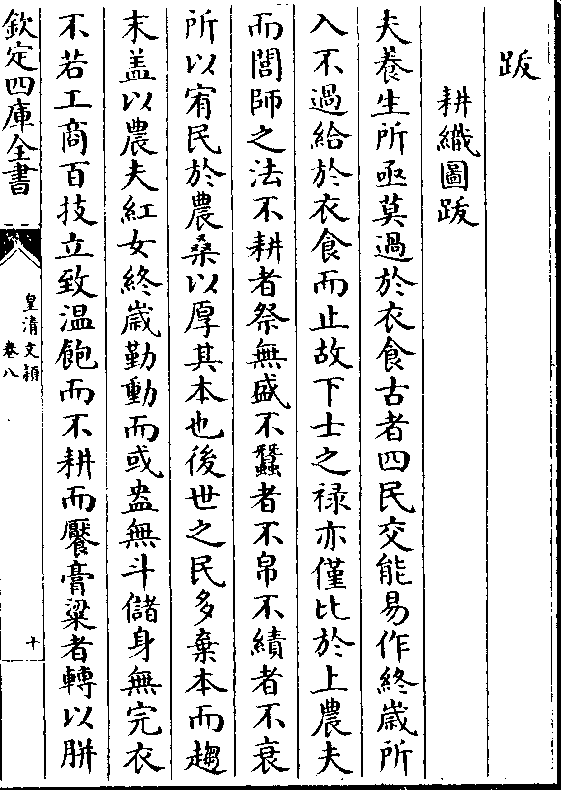 跋
耕織圖跋
夫養生所亟莫過於衣食古者四民交能易作終歲所
入不過給於衣食而止故下士之祿亦僅比於上農夫
而閭師之法不耕者祭無盛不蠶者不帛不績者不衰
所以宥民於農桑以厚其本也後世之民多棄本而趨
末盖以農夫紅女終歲勤動而或盎無斗儲身無完衣
不若工商百技立致温飽而不耕而饜膏粱者轉以胼
欽定四庫全書
皇清文穎
卷八
十